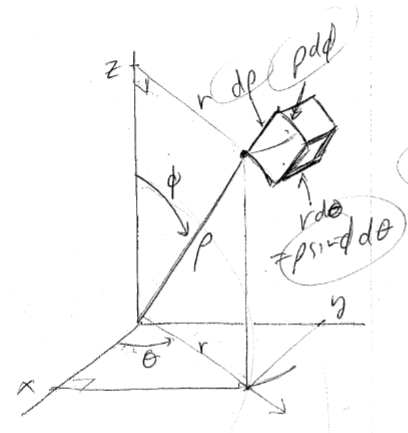 z
r dρ ρdϕ
ϕ
rdθ
=ρsinϕdθ
ρ
y
θ r
x